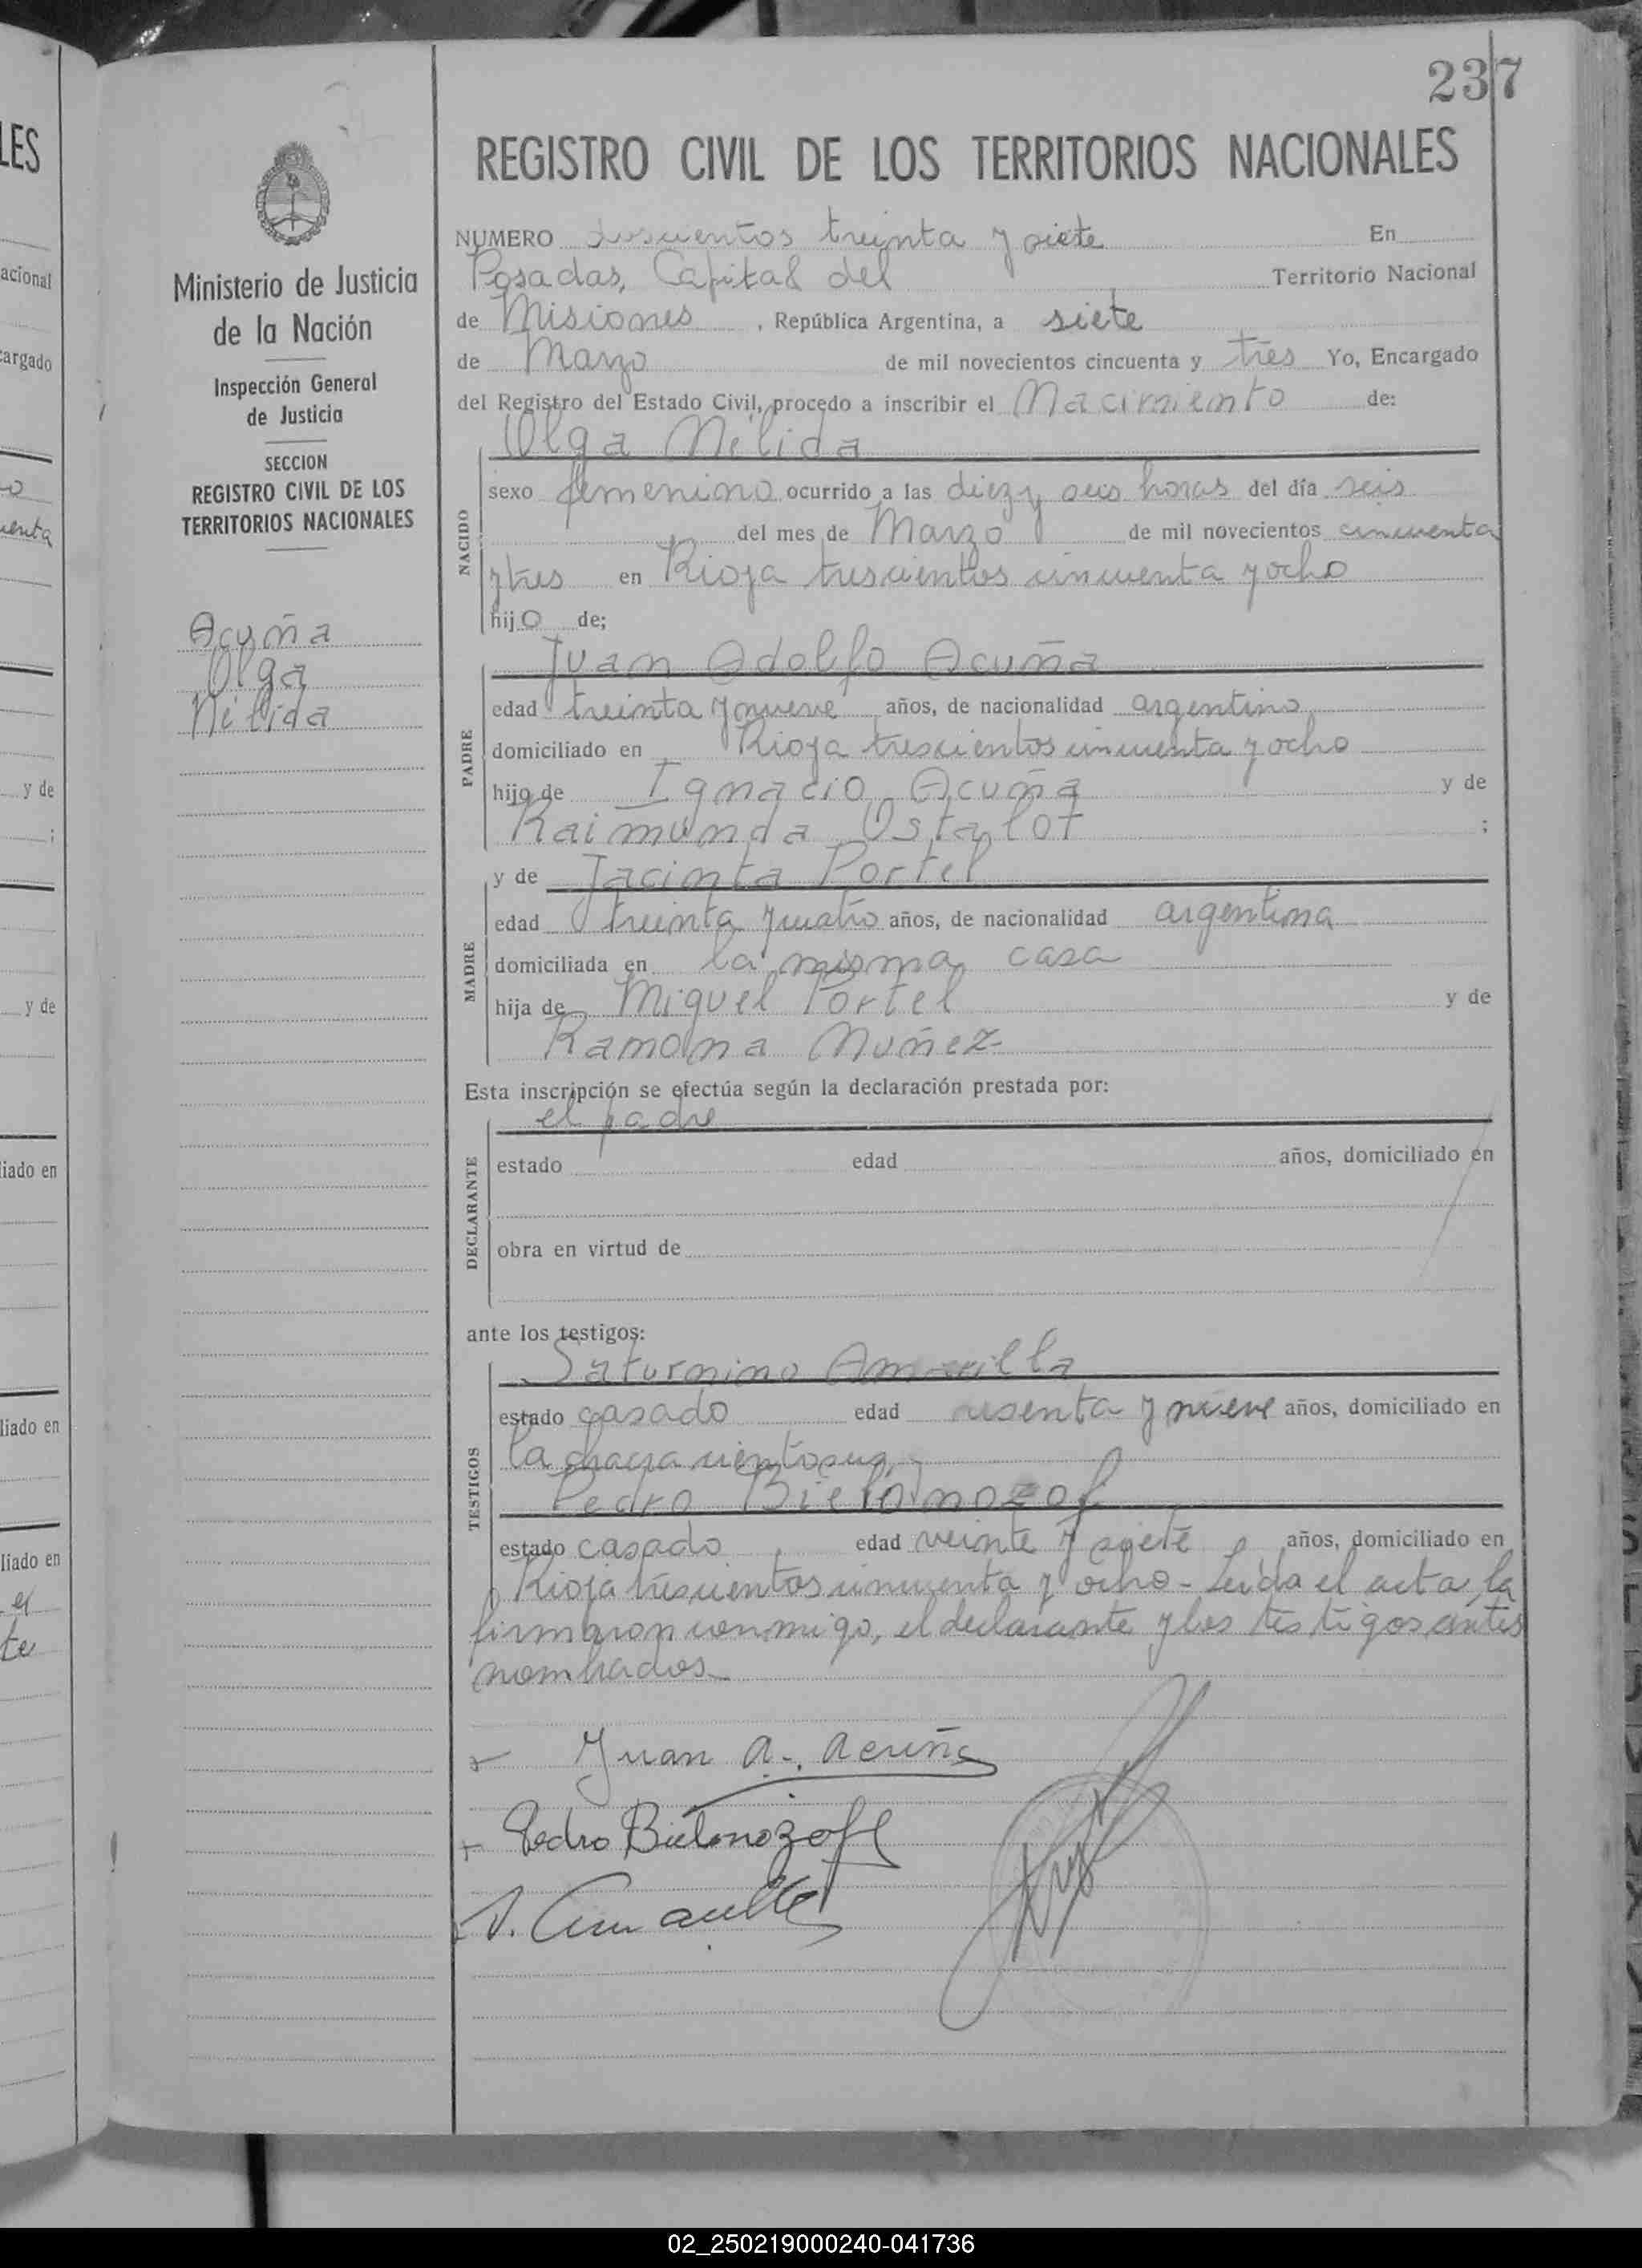 237
REGISTRO CIVIL DE LOS TERRITORIOS NACIONALES
Ministerio de Justicia
de la Nación
Inspección General
de Justicia
SECCION
REGISTRO CIVIL DE LOS
TERRITORIOS NACIONALES
Acuña
Olga
Nélida
NUMERO doscientos treinta y siete En
Posadas, Capital del Territorio Nacional
de Misiones, República Argentina, a siete
de Marzo de mil novecientos cincuenta y tres Yo, Encargado
del Registro del Estado Civil, procedo a inscribir el Nacimiento de:
NACIDO
Olga Nélida
sexo femenino ocurrido a las diez y seis horas del día seis
del mes de Marzo de mil novecientos cincuenta
y tres en Rioja trescientos cincuenta y ocho
hijo de;
PADRE
Juan Adolfo Acuña
edad treinta y nueve años, de nacionalidad argentino
domiciliado en Rioja trescientos cincuenta y ocho
hijo de Ignacio Acuña y de
Raimunda Ostalot ;
MADRE
y de Jacinta Portel
edad treinta y cuatro años, de nacionalidad argentina
domiciliada en la misma casa
hija de Miguel Portel y de
Ramona Nuñez
Esta inscripción se efectúa según la declaración prestada por:
DECLARANTE
el padre
estado edad años, domiciliado en
obra en virtud de
ante los testigos:
TESTIGOS
Saturnino Amarilla
estado casado edad sesenta y nueve años, domiciliado en
la chacra ciento
Pedro Bielonozof
estado casado edad veinte y siete años, domiciliado en
Rioja trescientos cincuenta y ocho - Leída el acta, la
firmaron conmigo, el declarante y los testigos antes
nombrados
Juan A. Acuña
Pedro Bielonozoff
S. Amarilla
LES
acional
cargado
uenta
y de
;
y de
liado en
liado en
liado en
el
te
02_250219000240-041736